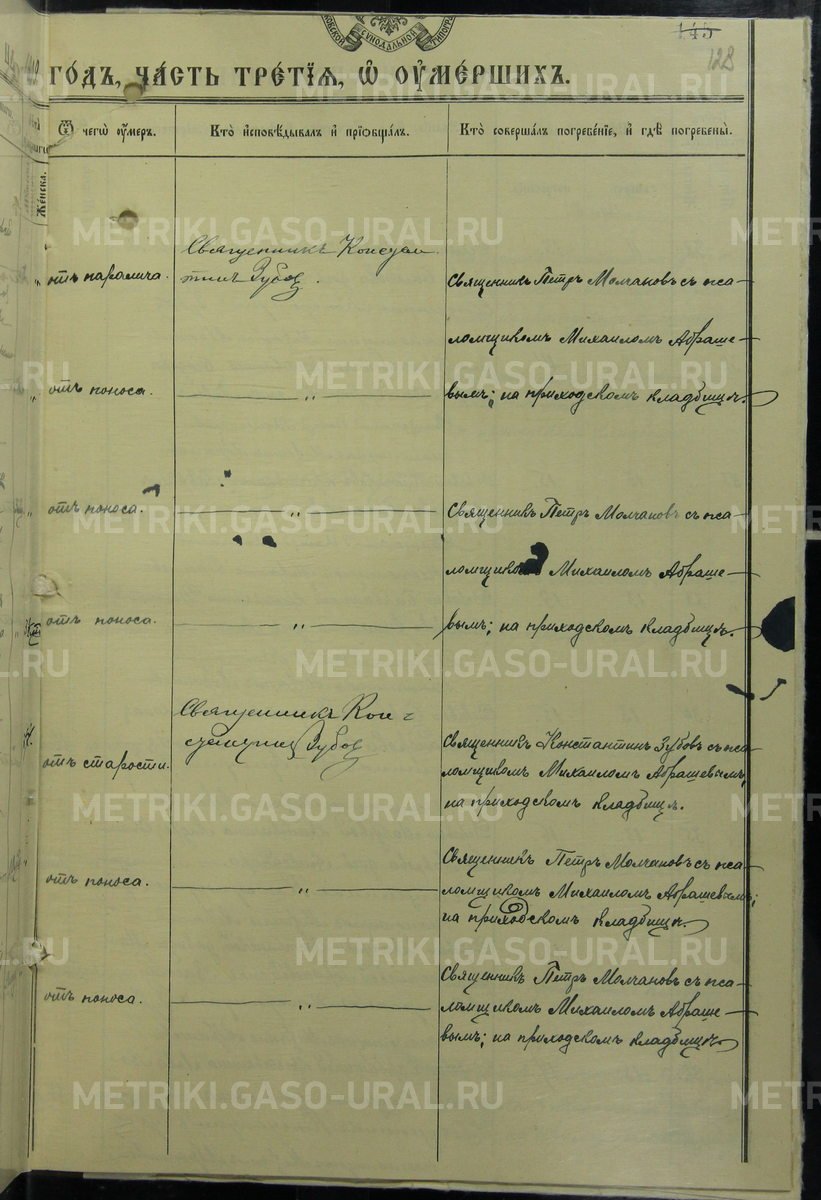 СѴНОДАЛЬНОЙ
145
128
ГО́ДЪ, ЧА́СТЬ ТРЕ́ТЇѦ, Ѡ҆ ОУ҆МЕ́РШИХЪ.
Ѿ чегѡ̀ оу҆́меръ.
Кто̀ и҆сповѣ́дывалъ и҆ прїѡбща́лъ.
Кто̀ соверша́лъ погребе́нїе, и҆ гдѣ̀ погребены̀.
Же́нска.
отъ паралича.
Священникъ Констан
тинъ Зубов.
Священникъ Петръ Молчановъ съ пса-
ломщикомъ Михаиломъ Абраше-
отъ поноса.
"
вымъ; на приходскомъ кладбищѣ.
отъ поноса.
"
Священникъ Петръ Молчановъ съ пса-
ломщикомъ Михаиломъ Абраше-
отъ поноса.
"
вымъ; на приходскомъ кладбищѣ.
Священникъ Кон-
стантин Зубов
отъ старости.
Священникъ Константинъ Зубовъ съ пса-
ломщикомъ Михаиломъ Абрашевымъ;
на приходскомъ кладбищѣ.
отъ поноса.
"
Священникъ Петръ Молчановъ съ пса-
ломщикомъ Михаиломъ Абрашевымъ;
на приходскомъ кладбищѣ.
отъ поноса.
"
Священникъ Петръ Молчановъ съ пса-
ломщикомъ Михаиломъ Абраше-
вымъ; на приходскомъ кладбищѣ.
METRIKI.GASO-URAL.RU